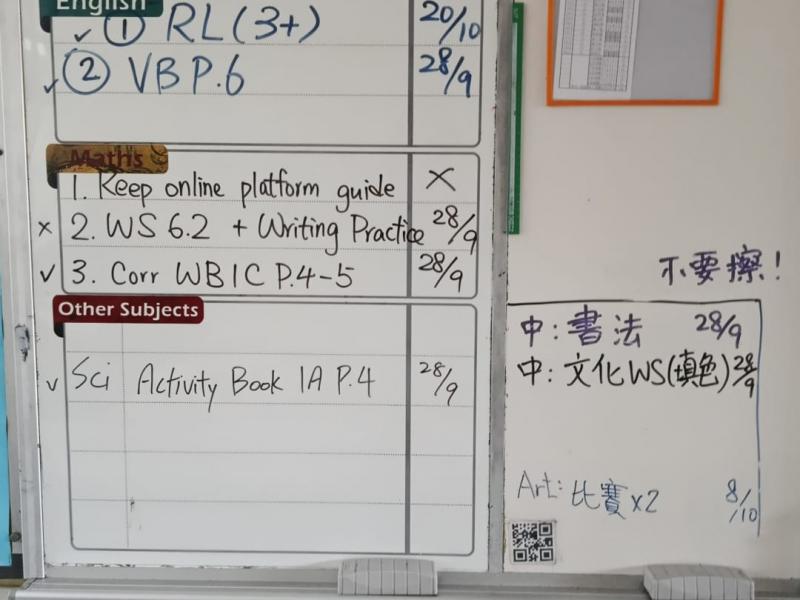 English
✓ ① RL (3+) 20/10
✓ ② VB P.6 28/9
Maths
1. Keep online platform guide ×
× 2. WS 6.2 + Writing Practice 28/9
✓ 3. Corr WB 1C P.4-5 28/9
Other Subjects
✓ Sci Activity Book 1A P.4 28/9
不要擦！
中：書法 28/9
中：文化WS(填色) 28/9
Art: 比賽 x2 8/10